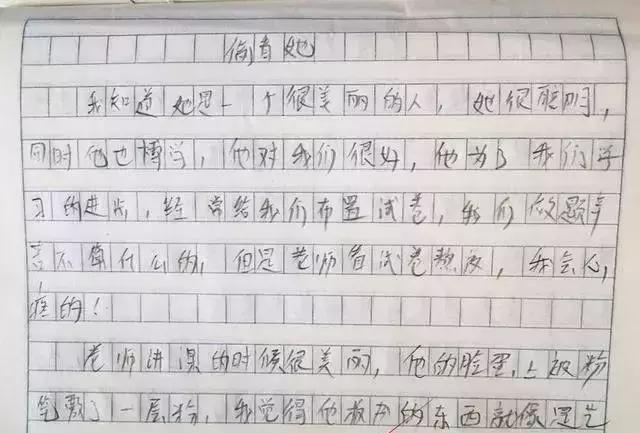 偷看她
我知道她是一个很美丽的人，她很聪明，
同时他也博学，他对我们很好，他为了我们学
习的进步，经常给我们布置试卷，我们做题辛
苦不算什么的，但是老师看试卷熬夜，我会心
疼的！
老师讲课的时候很美丽，他的脸蛋上被粉
笔敷了一层粉，我觉得他教的东西就像是艺